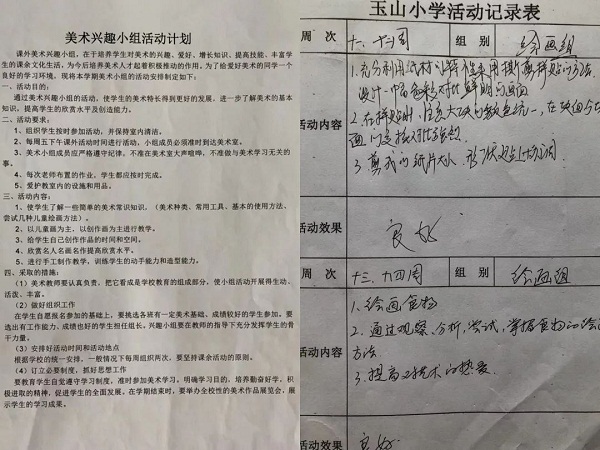 美术兴趣小组活动计划
课外美术兴趣小组，在于培养学生对美术的兴趣、爱好、增长知识、提高技能、丰富学
生的课余文化生活，为今后培养美术人才起着积极推动的作用。为了给爱好美术的同学一个
良好的学习环境，现将本学期美术小组的活动安排制定如下：
一、活动目的：
通过美术兴趣小组的活动，使学生的美术特长得到更好的发展，进一步了解美术的基本
知识，提高学生的欣赏水平及创造能力。
二、活动要求：
1、组织学生按时参加活动，并保持室内清洁。
2、每周五下午课外活动时间进行活动，小组成员必须准时到达美术室。
3、美术小组成员应严格遵守纪律，不准在美术室大声喧哗，不准做与美术学习无关的
事。
4、每次老师布置的作业，学生都应按时完成。
5、爱护教室内的设施和用品。
三、活动内容：
1、使学生了解一些简单的美术常识知识，（美术种类、常用工具、基本的使用方法、
尝试几种儿童绘画方法）。
2、以儿童画为主、以创作画为主进行教学。
3、给学生自己创作作品的时间和空间。
4、欣赏名人名画名作提高欣赏水平。
5、进行手工制作教学，训练学生的动手能力和造型能力。
四、采取的措施：
（1）美术教师要认真负责，把它看成是学校教育的组成部分，使小组活动开展得生动、
活泼、丰富。
（2）做好组织工作
在学生自愿报名参加的基础上，要挑选各班有一定美术基础、成绩较好的学生参加。要
选出有工作能力、成绩也好的学生担任组长，兴趣小组要在教师的指导下充分发挥学生的骨
干力量。
（3）安排好活动时间和活动地点
根据学校的统一安排，一般情况下每周组织两次，要坚持课余活动的原则。
（4）订立必要制度，抓好思想工作
要教育学生自觉遵守学习制度，准时参加美术学习，明确学习目的，培养勤奋好学，积
极进取的精神，促进学生的全面发展，在学期结束时，要举办全校性的美术作品展览会，展
示学生的学习成果。
玉山小学活动记录表
周 次 十一、十二周 组 别 绘画组
活动内容
1.充分利用纸材 采用 剪拼贴的方法
设计一中 色彩对比鲜明的画面
2.在拼贴时，注意大 的 统一，在
3.剪 的纸片大小、形状
活动效果 良好
周 次 十三、十四周 组 别 绘画组
活动内容
1.绘画食物
2.通过观察、分析、尝试，掌握食物的绘画
方法
3.提高 美术的热爱
活动效果 良好